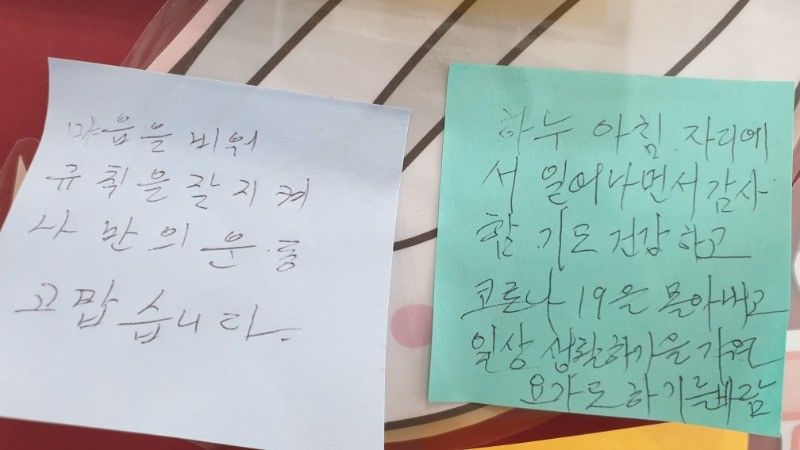 마음을 비워
규칙을 잘 지켜
나 만의 운동
고맙습니다.
하누 아침 자리에
서 일어나면서 감사
할 기도 건강하고
코로나 19을 몰아버고
일상
요가도 하기를바람